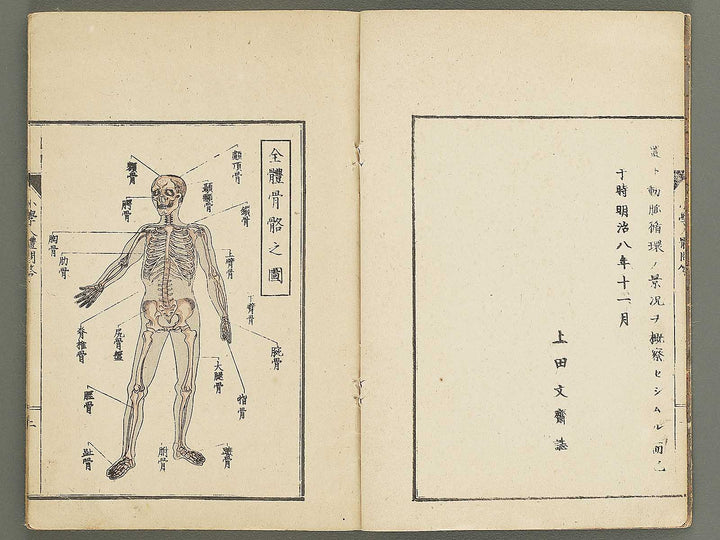 道ト動脈循環ノ景況ヲ概察セシムル而已
于時明治八年十一月
上田文齋誌
全體骨骼之圖
顱頂骨
顳顬骨
鎖骨
額骨
腭骨
胸骨
肋骨
上臂骨
下臂骨
腕骨
指骨
脊椎骨
尻骨盤
大腿骨
脛骨
腓骨
跗骨
趾骨